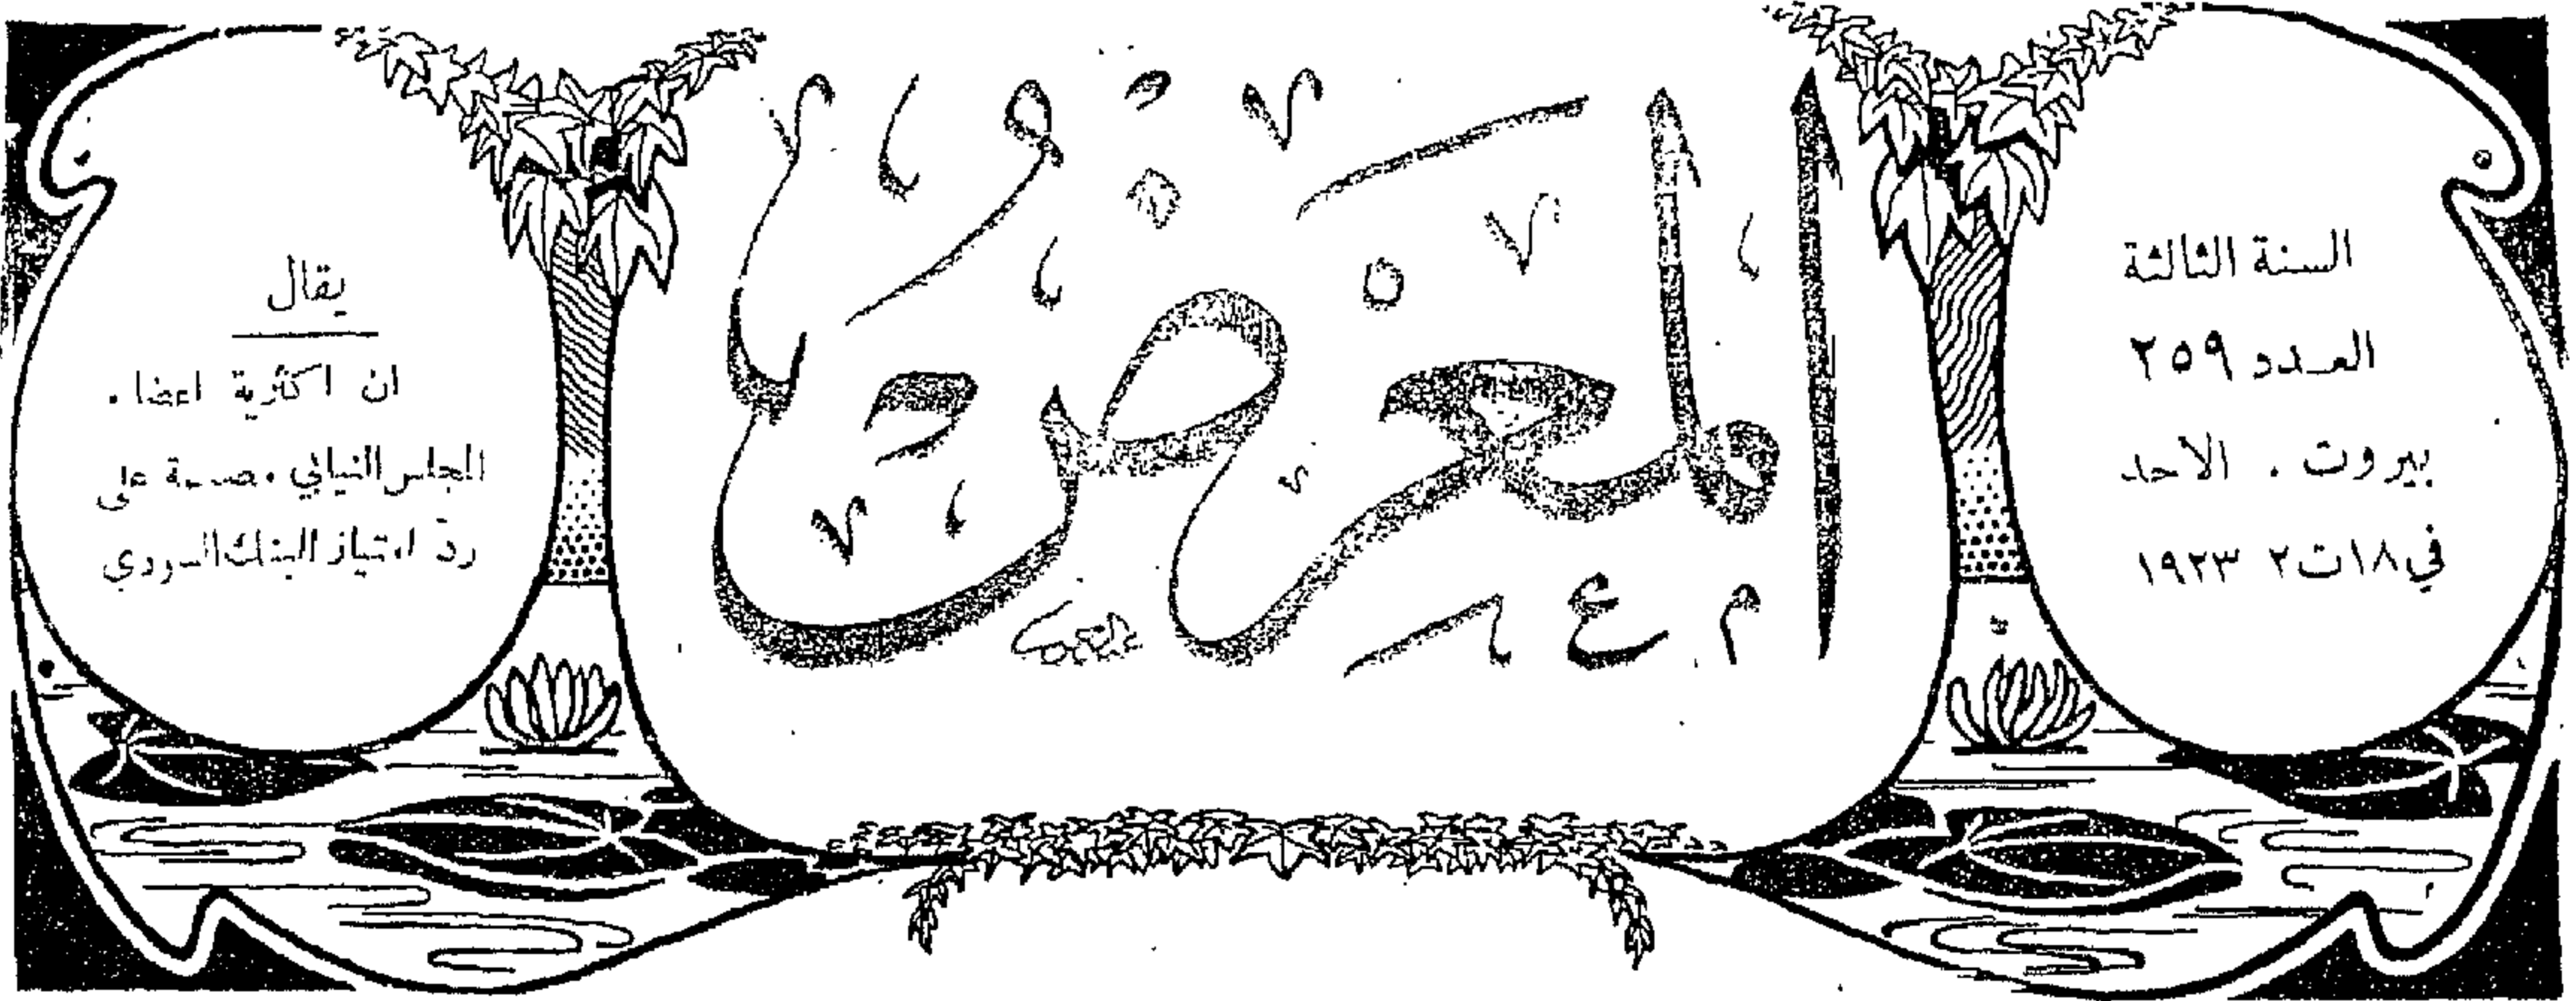 السنة الثالثة
العدد ٢٥٩
بيروت . الاحد
في ١٨ ت ٢ ١٩٢٣
المعرض
يقال
ان اكثرية اعضاء
المجلس النيابي مصممة على
رد امتياز البنك السوري